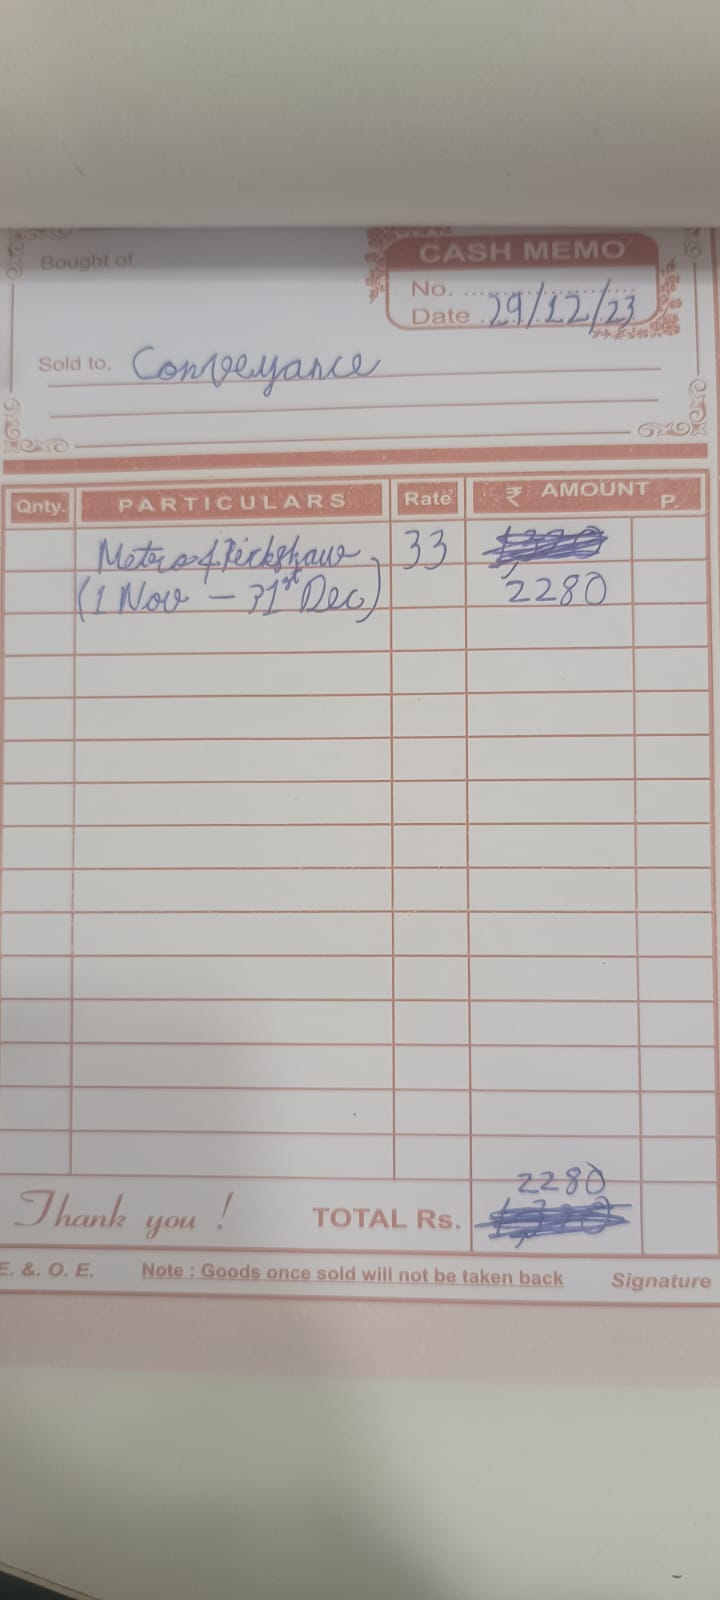 Bought of
CASH MEMO
No. ........................
Date . 29/12/23
Sold to, Conveyance
Qnty. PARTICULARS Rate ₹ AMOUNT P.
Metro & Rickshaw 33
(1 Nov - 31st Dec) 2280
2280
Thank you ! TOTAL Rs.
E. &. O. E. Note : Goods once sold will not be taken back Signature